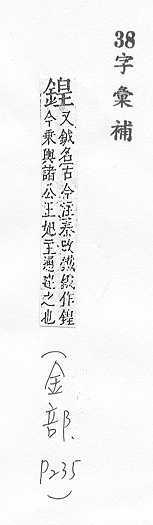 38 字彙補
鍟 又鉞名古今注秦改鐵鉞作鍟
今乘輿諸公王妃主通建之也
(金部.
P235)